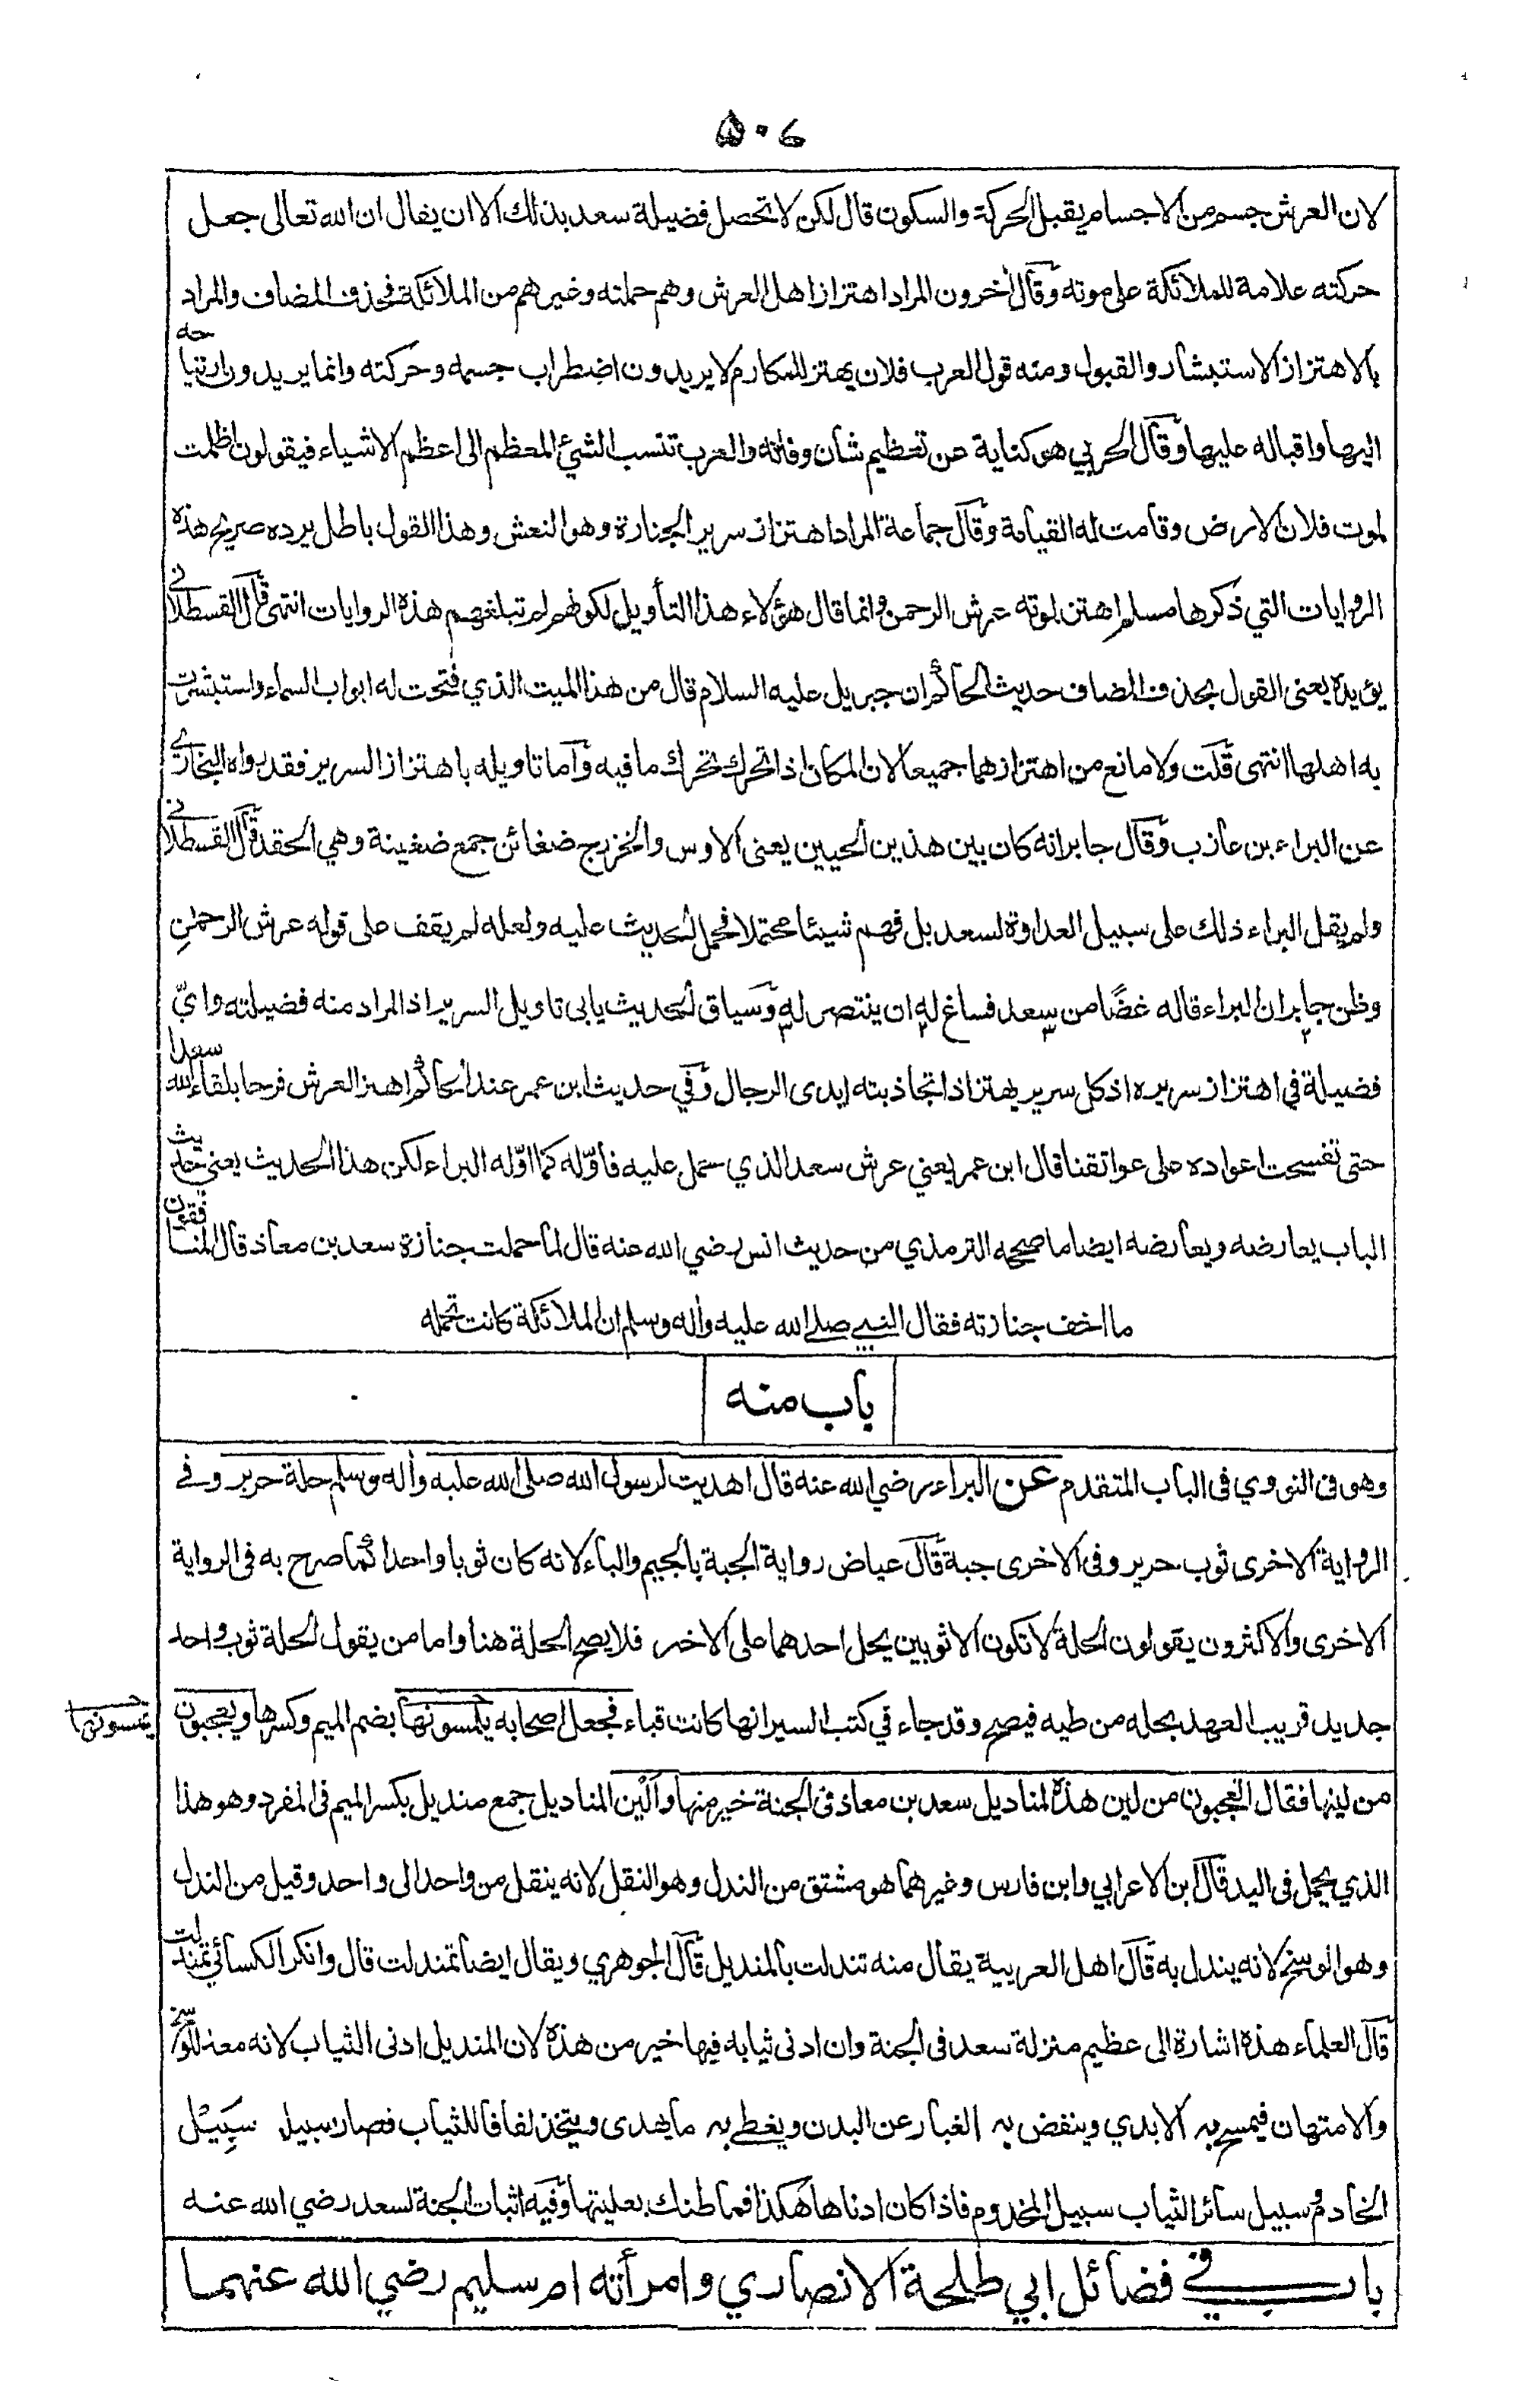 ۵۰۶
لان العرش جسم من الاجسام يقبل الحركة والسكون قال لكن لا تحصل فضيلة سعد بذلك الا ان يقال ان الله تعالى جعل
حركته علامة للملائكة على موته وقال اخرون المراد اهتزاز اهل العرش وهم حملته وغيرهم من الملائكة فحذف المضاف والمراد
بالاهتزاز الاستبشار والقبول ومنه قول العرب فلان يهتز للمكارم لا يريدون اضطراب جسمه وحركته وانما يريدون ارتياحه
اليها واقباله عليها وقال الحربي هو كناية عن تعظيم شأن وفاته والعرب تنسب الشئ المعظم الى اعظم الاشياء فيقولون اظلمت
لموت فلان الارض وقامت له القيامة وقال جماعة المراد اهتزاز سرير الجنازة وهو النعش وهذا القول باطل يرده صريح هذه
الروايات التي ذكرها مسلم اهتز لموته عرش الرحمن وانما قال هؤلاء هذا التأويل لكونهم لم تبلغهم هذه الروايات انتهى قال القسطلاني
يؤيده يعنى القول بحذف المضاف حديث الحاكم ان جبريل عليه السلام قال من هذا الميت الذي فتحت له ابواب السماء واستبشرت
به اهلها انتهى قلت ولا مانع من اهتزازهما جميعا لان المكان اذا تحرك تحرك ما فيه وأما تاويله باهتزاز السرير فقد رواه البخاري
عن البراء بن عازب وقال جابر انه كان بين هذين الحيين يعنى الاوس والخزرج ضغائن جمع ضغينة وهي الحقد قال القسطلاني
ولم يقل البراء ذلك على سبيل العداوة لسعد بل فهم شيئا محتملا فحمل الحديث عليه ولعله لم يقف على قوله عرش الرحمن
وظن جابر ان البراء قاله غضًا من سعد فساغ له ان ينتصر له وسياق الحديث يابى تاويل السرير اذ المراد منه فضيلته وايّ
فضيلة في اهتزاز سريره اذ كل سرير يهتز اذا تجاذبته ايدى الرجال وفي حديث ابن عمر عند الحاكم اهتز العرش فرحا بلقاء الله سعدا
حتى تفسحت اعواده على عواتقنا قال ابن عمر يعني عرش سعد الذي حمل عليه فأوّله كما اوّله البراء لكن هذا الحديث يعني حديث
الباب يعارضه ويعارضه ايضا ما صححه الترمذي من حديث انس رضي الله عنه قال لما حملت جنازة سعد بن معاذ قال المنافقون
ما اخف جنازته فقال النبي صلى الله عليه واله وسلم ان الملائكة كانت تحمله
باب منه
وهو فى النووي فى الباب المتقدم عن البراء رضي الله عنه قال اهديت لرسول الله صلى الله عليه واله وسلم حلة حرير وفي
الرواية الاخرى ثوب حرير وفى الاخرى جبة قال عياض رواية الجبة بالجيم والباء لانه كان ثوبا واحدا كما صرح به فى الرواية
الاخرى والاكثرون يقولون الحلة لا تكون الا ثوبين يحل احدهما على الاخر فلا يصح الحلة هنا واما من يقول الحلة ثوب واحد
جديد قريب العهد بحله من طيه فيصح وقد جاء في كتب السير انها كانت قباء فجعل اصحابه يلمسونها بضم الميم وكسرها ويعجبون
من لينها فقال اتعجبون من لين هذه لمناديل سعد بن معاذ فى الجنة خير منها وألين المناديل جمع منديل بكسر الميم فى المفرد وهو هذا
الذي يحمل فى اليد قال ابن الاعرابي وابن فارس وغيرهما هو مشتق من الندل وهو النقل لانه ينقل من واحد الى واحد وقيل من الندل
وهو الوسخ لانه يندل به قال اهل العربية يقال منه تندلت بالمنديل قال الجوهري ويقال ايضا تمندلت قال وانكر الكسائي تمندلت
قال العلماء هذه اشارة الى عظيم منزلة سعد فى الجنة وان ادنى ثيابه فيها خير من هذه لان المنديل ادنى الثياب لانه معد للوسخ
والامتهان فيمسح به الايدي وينفض به الغبار عن البدن ويغطى به ما يهدى ويتخذ لفافا للثياب فصار سبيله سبيل
الخادم وسبيل سائر الثياب سبيل المخدوم فاذا كان ادناها هكذا فما ظنك بعليتها وفيه اثبات الجنة لسعد رضي الله عنه
باب في فضائل ابي طلحة الانصاري وامرأته ام سليم رضي الله عنهما